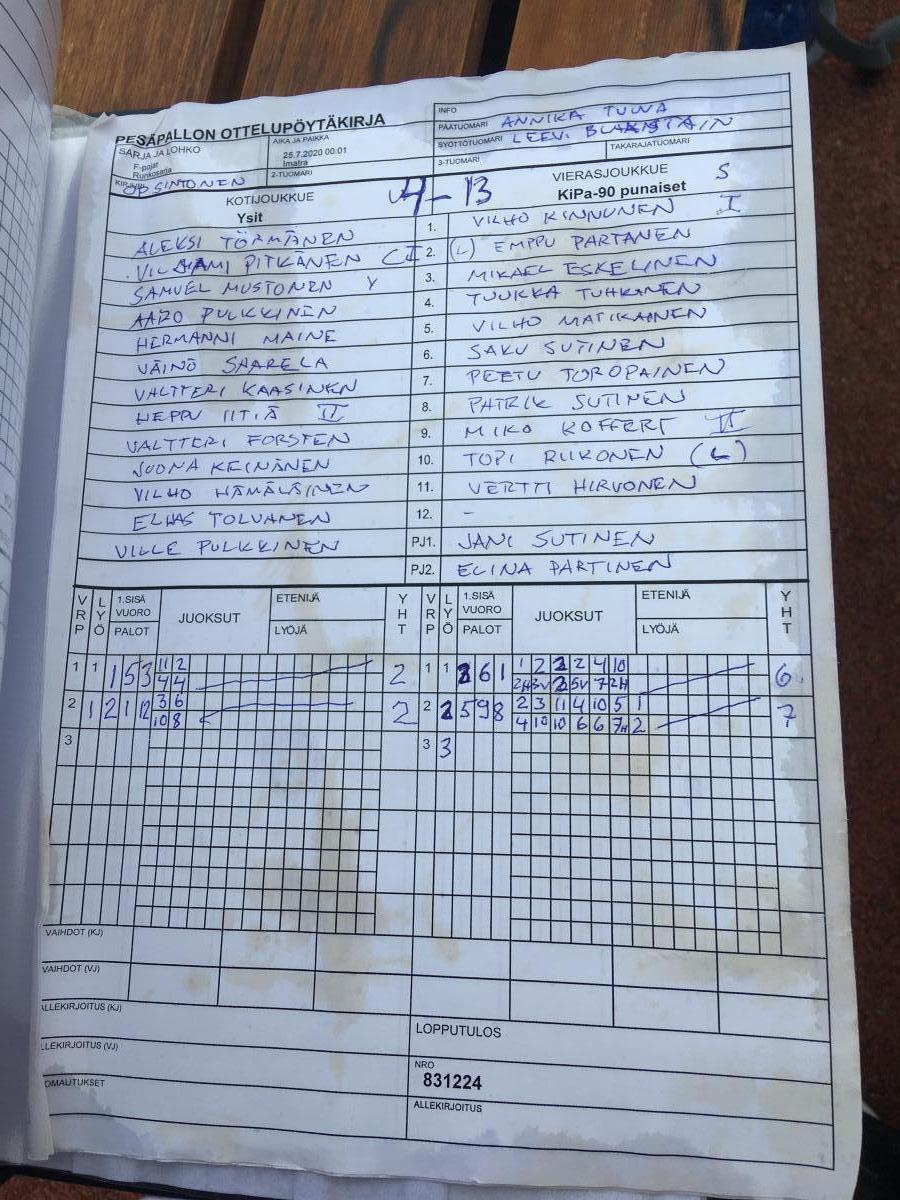 PESÄPALLON OTTELUPÖYTÄKIRJA
INFO
PÄÄTUOMARI ANNIKA
SYÖTTÖTUOMARI LEEVI
TAKARAJATUOMARI
3-TUOMARI
SARJA JA LOHKO
F-pojat
Runkosarja
AIKA JA PAIKKA
25.7.2020 00:01
Imatra
2-TUOMARI
KIRJURI OP SINTONEN
KOTIJOUKKUE
Ysit
4-13
VIERASJOUKKUE S
KiPa-90 punaiset
ALEKSI TÖRMÄNEN 1. VILHO KINNUNEN I
VILJAMI PITKÄNEN C II 2. (L) EMPPU PARTANEN
SAMUEL MUSTONEN Y 3. MIKAEL ESKELINEN
AARO PULKKINEN 4. TUUKKA TUHKANEN
HERMANNI MAINE 5. VILHO MATIKAINEN
VÄINÖ SAARELA 6. SAKU SUTINEN
VALTTERI KAASINEN 7. PEETU TOROPAINEN
HEPPU IITIÄ II 8. PATRIK SUTINEN
VALTTERI FORSTEN 9. MIKO KOFFERT II
JOONA KEINÄNEN 10. TOPI RIIKONEN (L)
VILHO HÄMÄLÄINEN 11. VERTTI HIRVONEN
ELIAS TOLVANEN 12. -
VILLE PULKKINEN PJ1. JANI SUTINEN
PJ2. ELINA PARTINEN
VRP LYÖ 1.SISÄ VUORO PALOT JUOKSUT ETENIJÄ LYÖJÄ YHT VRP LYÖ 1.SISÄ VUORO PALOT JUOKSUT ETENIJÄ LYÖJÄ YHT
1 1 1 5 3 11 2 2 1 1 6 1 1 2 2 2 4 10 6
4 4 2H 3V 2 5V 7 2H
2 1 2 1 12 3 6 2 2 2 5 9 8 2 3 11 4 10 5 1 7
10 8 4 10 10 6 6 7H 2
3 3 3
VAIHDOT (KJ)
VAIHDOT (VJ)
ALLEKIRJOITUS (KJ)
LOPPUTULOS
LLEKIRJOITUS (VJ)
NRO
831224
OMAUTUKSET
ALLEKIRJOITUS